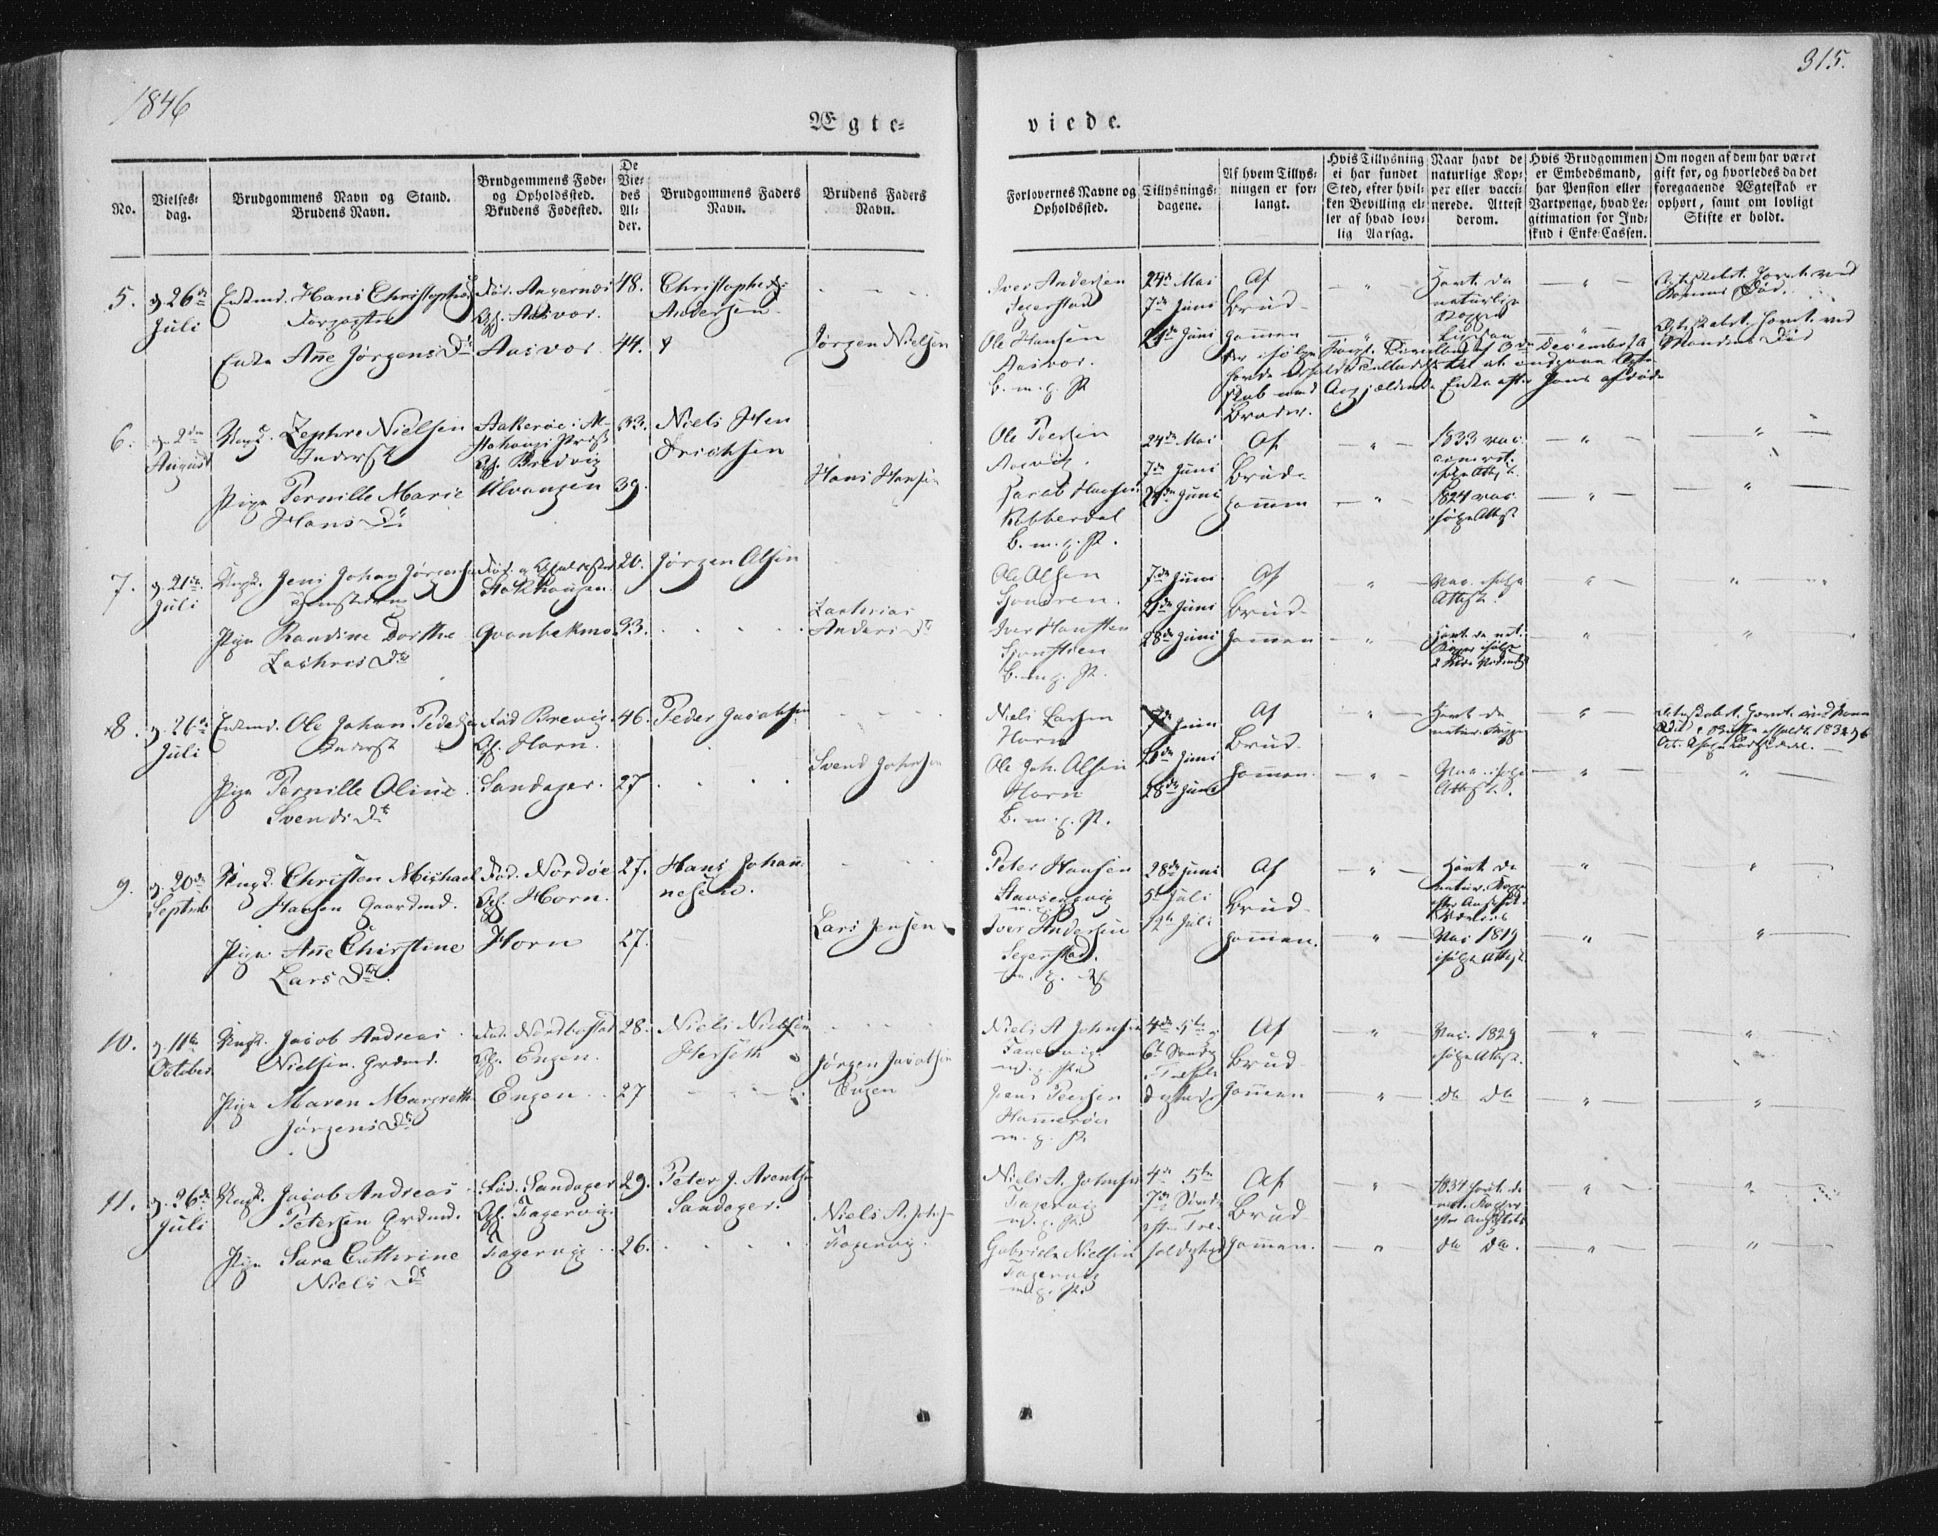 1846
315.
Ægte-
viede.
No.
Vielses-
dag.
Brudgommens Navn og Stand.
Brudens Navn.
Brudgommens Føde-
og Opholdssted.
Brudens Fødested.
De
Vie-
des
Al-
der.
Brudgommens Faders
Navn.
Brudens Faders
Navn.
Forlovernes Navne og
Opholdssted.
Tillysnings-
dagene.
Af hvem Tillys-
ningen er for-
langt.
Hvis Tillysning
ei har fundet
Sted, efter hvil-
ken Bevilling el-
ler af hvad lov-
lig Aarsag.
Naar havt de
naturlige Kop-
per eller vacci-
nerede. Attest
derom.
Hvis Brudgommen
er Embedsmand,
har Pension eller
Vartpenge, hvad Le-
gitimation for Ind-
skud i Enke-Cassen.
Om nogen af dem har været
gift før, og hvorledes da det
foregaaende Ægteskab er
ophørt, samt om lovligt
Skifte er holdt.
5. 26de
Juli
Enkemd. Hans Christophers
Enke Ane Jørgens Dr
Fød. Angernæs
Oph. Aasvær.
Aasvær
48.
44.
Christopher
Andersen.
Jørgen Nielsen
Iver Andersen
Segerstad
Ole Hansen
Aasvær.
B. m. g. P.
24de Mai
7de Juni
21de Juni
Af
Brud-
gommen
Havt de
naturlige
Kopper
6. 2den
August
Ungk. Zephre Nielsen
Inderst
Pige Pernille Marie
Hans Dr
Brevig
Ulvangen
33.
39.
Niels Hen
drichsen
Hans Hansen
Ole Peersen
Jacob Hansen
Kobberdal
B. m. g. P.
24de Mai
7de Juni
21de Juni
Af
Brud-
gommen
1833 vac.
1824 vac.
ifølge Attest
7. 21de
Juli
Ungk. Jens Johan Jørgensen
Pige Randine Dorthe
Zachris Dr
Stokhougen
Qvanbekmo
20.
33.
Jørgen Olsen
Zacherias
Anders
Ole Olsen
Iver Hansen
B. m. g. P.
7de Juni
21de Juni
28de Juni
Af
Brud-
gommen
Vac. ifølge
Attest.
8. 26de
Juli
Enkemd. Ole Johan Pedersen
Inderst
Pige Pernille Oline
Svends Dr
Fød Brevig
Oph. Horn.
Sandager.
46.
27
Peder Jacobsen
Svend Johnsen
Niels Larsen
Horn
Ole Joh. Olsen
Horn
B. m. g. P.
7de Juni
21de Juni
28de Juni
Af
Brud-
gommen.
Havt de
natur. Kopper
Vac. ifølge
Attest.
9. 20de
Septemb
Ungk. Christen Michael
Hansen Gaardmd.
Pige Ane Christine
Lars Dr.
Fød. Nordøe
Oph. Horn.
Horn
27.
27.
Hans Johan-
nesen.
Lars Jensen
Peter Hansen
Iver Andersen
Segerstad.
m. g. P
28de Juni
5te Juli
12te Juli
Af
Brud-
gommen.
Havt de
natur. Kopper
Vac. 1819
ifølge Attest
10. 11te
October
Ungk. Jacob Andreas
Nielsen. Grdmd.
Pige Maren Margreth
Jørgens Dr
Fød. Nordbostad
Oph. Engen.
Engen
28.
27
Niels Nielsen
Herseth
Jørgen Jacobsen
Engen
Niels A. Johnsen
Fagervig.
m. g. P.
Jens Peersen
Hammerøe
m. g. P
4de 5te
6te Sønd
Af
Brud-
gommen
Vac. 1829
ifølge Attest.
do do
11. 26de
Juli
Ungk. Jacob Andreas
Petersen Grdmd.
Pige Sara Cathrine
Niels Dr
Fød. Sandager
Oph. Fagervig.
Fagervig
29.
26.
Peter J. Arentsen
Sandager.
Niels A. Johns
Fagervig.
Niels A. Johnsen
Fagervig
m. g. P.
Gabriel Nielsen
Fagervig
m. g. P.
4de 5te
7de Sønd
Af
Brud-
gommen.
1834 havt de
nat. Kopper
do do.